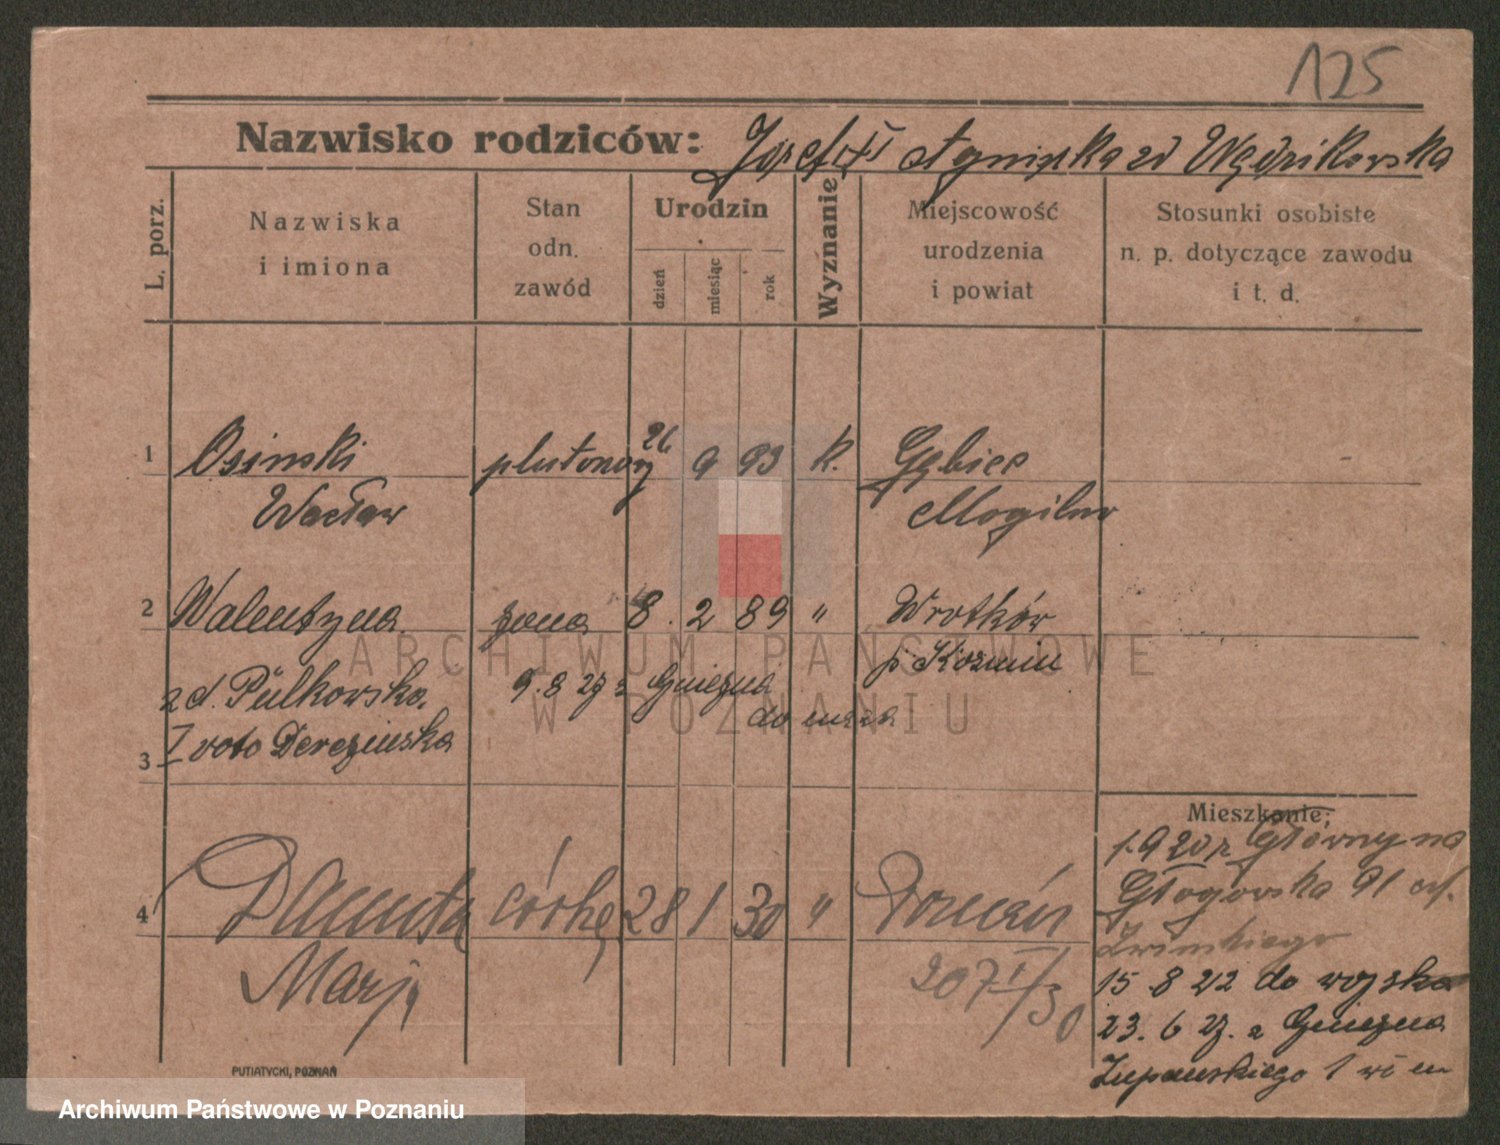 125
Nazwisko rodziców: Józef i Agnieszka zd Wędzikowska
L. porz.
Nazwiska i imiona
Stan odn. zawód
Urodzin
dzień
miesiąc
rok
Wyznanie
Miejscowość urodzenia i powiat
Stosunki osobiste n. p. dotyczące zawodu i t. d.
1 Osinski plutonowy 26 9 93 k. Gębice
Wacław Mogilno
2 Walentyna żona 8. 2 89 " Wrotków
p. Kozmin
zd. Pulkowska. 9. 8 27 z Gniezna
do męża
3 I voto Derezinska
Mieszkanie:
1.920 r Główny na
4 Danuta córka 28 1 30 " Poznań
Głogowska 91
Marja 207 I/30
15 8 22 do wojska
23. 6 27. z Gniezna
Żupańskiego 1 m
PUTIATYCKI, POZNAŃ
ARCHIWUM PAŃSTWOWE
W POZNANIU
Archiwum Państwowe w Poznaniu